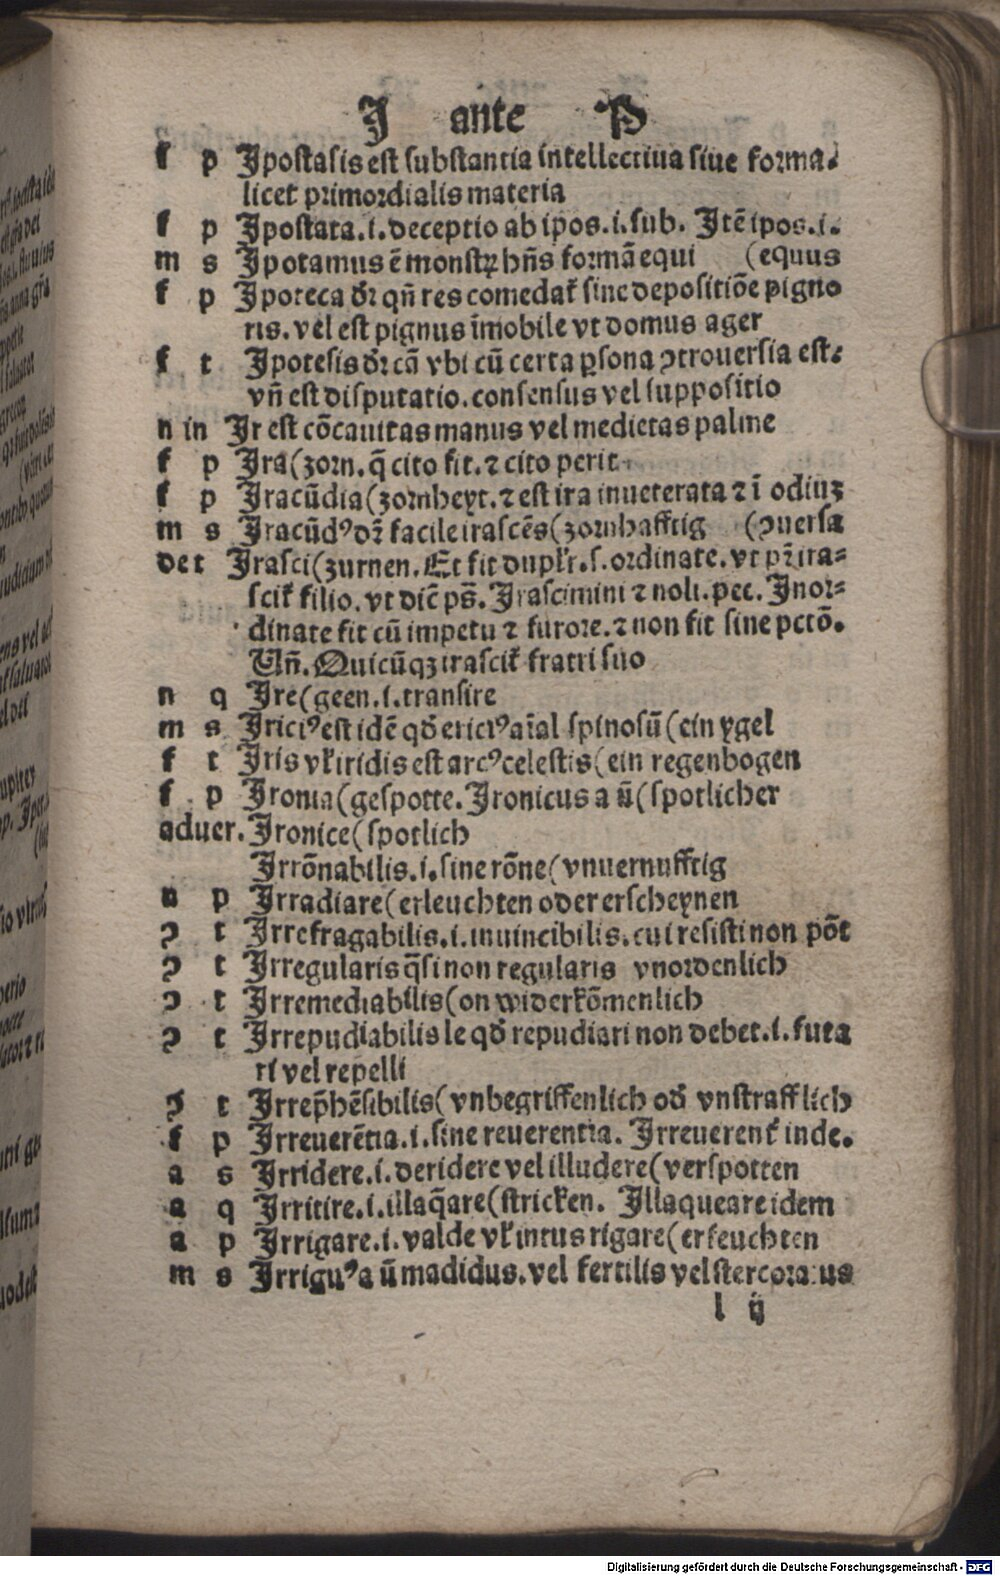 I ante P
f p Ipostasis est substantia intellectiua siue forma-
licet primordialis materia
f p Ipostata.i.deceptio ab ipos.i.sub. Itē ipos.i.
m s Ipotamus ē monstꝝ hn̄s formā equi (equus
f p Ipoteca dr̄ qn̄ res comedat᷑ sine depositiōe pigno
ris. vel est pignus īmobile vt domus ager
f t Ipotesis dr̄ cā vbi cū certa ꝑsona ꝯtrouersia est-
vn̄ est disputatio. consensus vel suppositio
n in Ir est cōcauitas manus vel medietas palme
f p Ira (zorn. q̄ cito fit. ⁊ cito perit
f p Iracūdia (zornheyt. ⁊ est ira inueterata ⁊ ī odiuꝫ
m s Iracūdꝰ dr̄ facile irascēs (zornhafftig (ꝯuersa
de t Irasci (zurnen. Et fit dupl'r. s. ordinate. vt pr̄ ira-
scit᷑ filio. vt dic̄ ps̄. Irascimini ⁊ noli. pec. Inor-
dinate fit cū impetu ⁊ furore. ⁊ non fit sine pctō.
Vn̄. Quicūqꝫ irascit᷑ fratri suo
n q Ire (geen. i. transire
m s Iriciꝰ est idē qđ ericiꝰ aīal spinosū (ein ygel
f t Iris vl' iridis est arcꝰ celestis (ein regenbogen
f p Ironia (gespotte. Ironicus a ū (spotlicher
aduer. Ironice (spotlich
Irrōnabilis. i. sine rōne (vnuernufftig
n p Irradiare (erleuchten oder erscheynen
ꝯ t Irrefragabilis. i. inuincibilis. cui resisti non pōt
ꝯ t Irregularis q̄si non regularis vnordenlich
ꝯ t Irremediabilis (on widerkōmenlich
ꝯ t Irrepudiabilis le qđ repudiari non debet. i. futa
ri vel repelli
ꝯ t Irrep̄hēsibilis (vnbegriffenlich ođ vnstrafflich
f p Irreuerētia. i. sine reuerentia. Irreuerent᷑ inde.
a s Irridere. i. deridere vel illudere (verspotten
a q Irritire. i. illaq̄are (stricken. Illaqueare idem
a p Irrigare. i. valde vl' intus rigare (erfeuchten
m s Irriguꝰ a ū madidus. vel fertilis vel stercora us
l ij
Digitalisierung gefördert durch die Deutsche Forschungsgemeinschaft - DFG